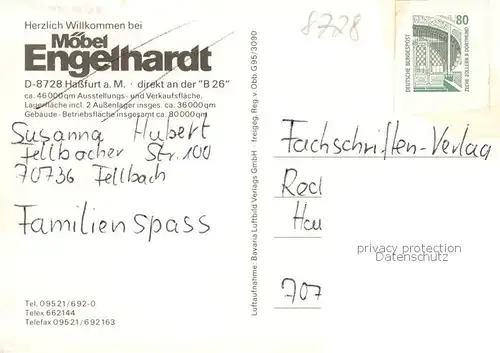 Herzlich Willkommen bei
Möbel
Engelhardt
D-8728 Haßfurt a. M. · direkt an der "B 26"
ca. 46 000 qm Ausstellungs- und Verkaufsfläche.
Lagerfläche incl. 2 Außenlager insges. ca. 36 000 qm
Gebäude - Betriebsfläche insgesamt ca. 80 000 qm
Susanna Hubert
Fellbacher Str. 100
70736 Fellbach
Familienspass
Tel. 09521/692-0
Telex 662144
Telefax 09521/692163
Luftaufnahme: Bavaria Luftbild Verlags GmbH · freigeg. Reg. v. Obb. G 95/3090
8728
80
DEUTSCHE BUNDESPOST
ZECHE ZOLLERN II DORTMUND
Fachschriften-Verlag
Red
Hau
707
privacy protection
Datenschutz